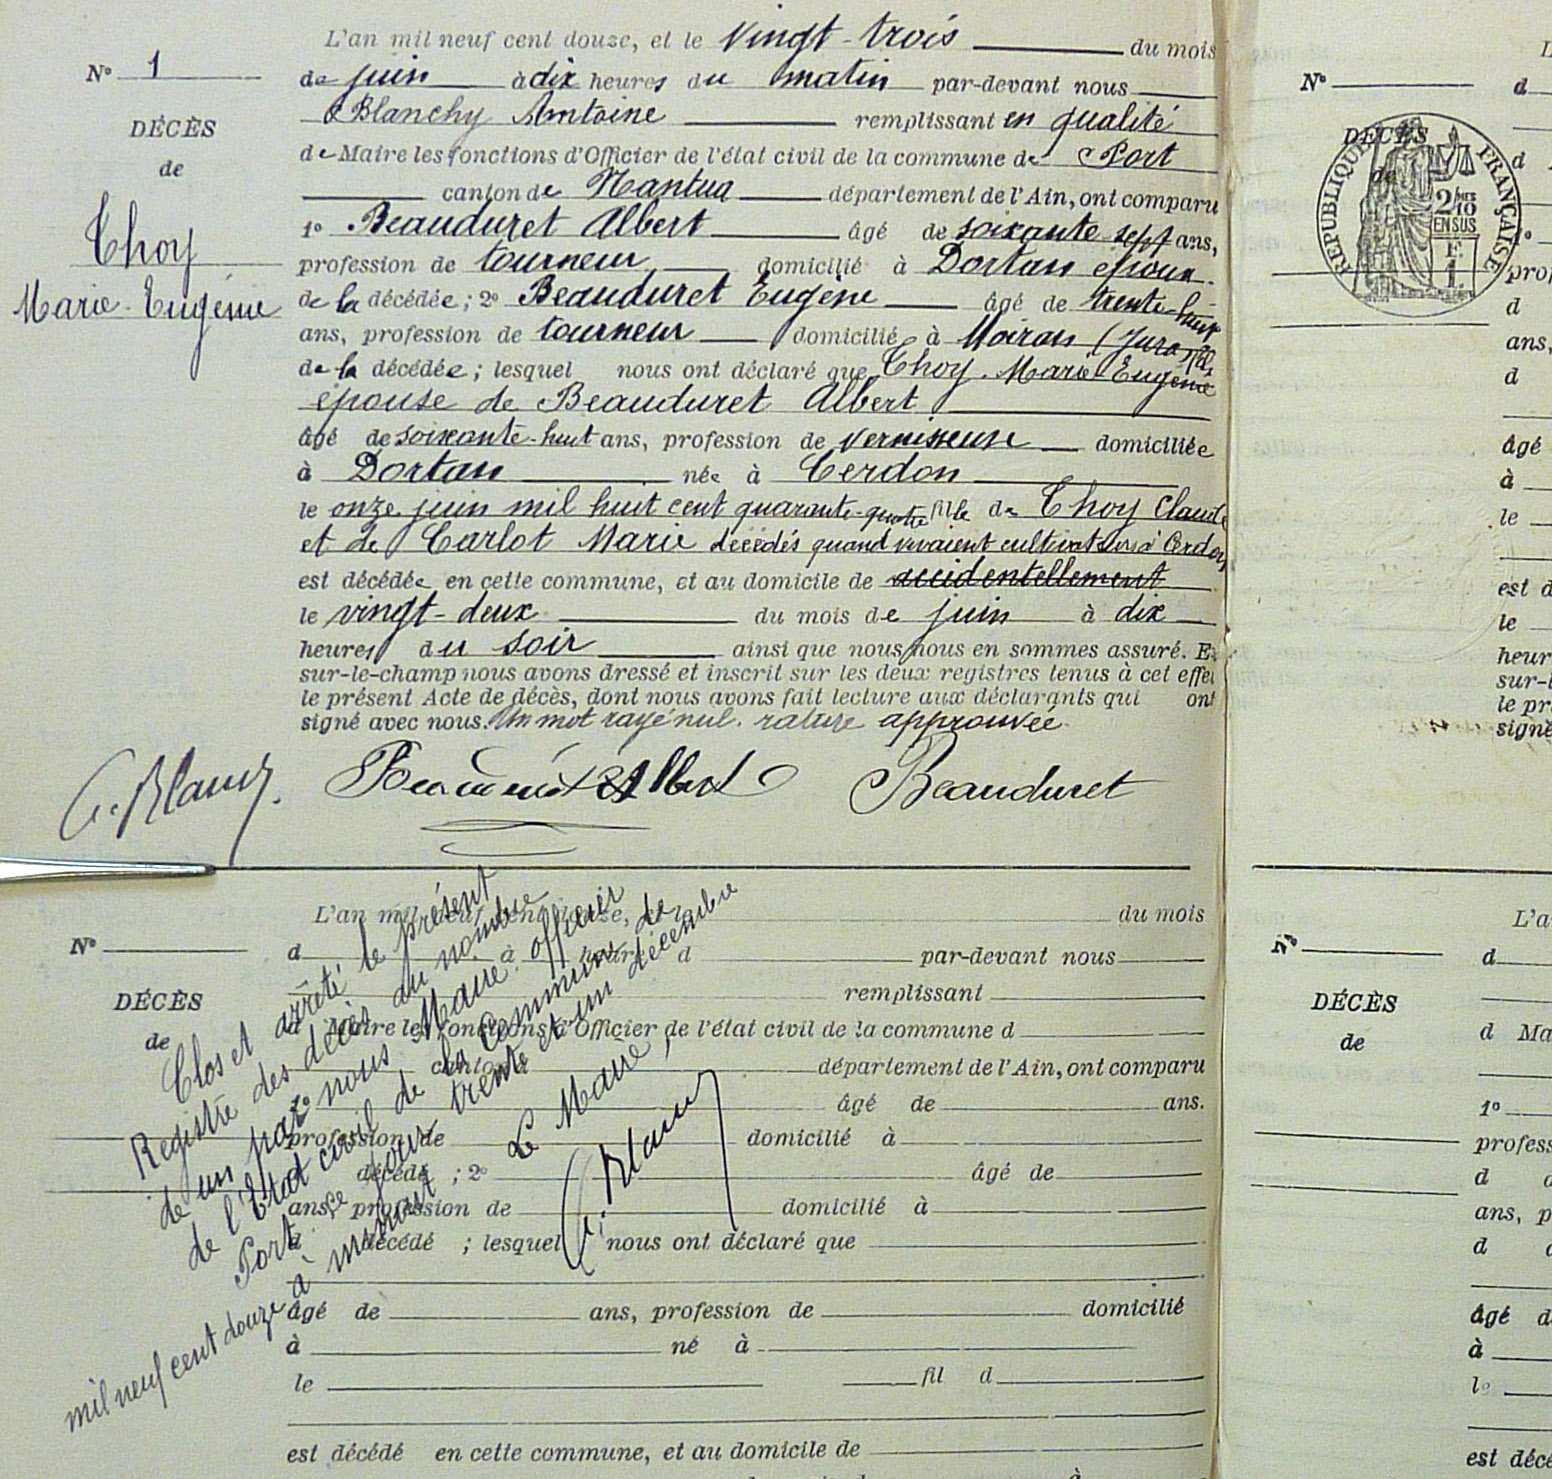 L'an mil neuf cent douze, et le vingt-trois du mois
N° 1
de juin à dix heures du matin par-devant nous
Blanchy Antoine remplissant en qualité
DÉCÈS
de Maire les fonctions d'Officier de l'état civil de la commune de Port
de
canton de Nantua département de l'Ain, ont comparu
Thoy
1° Beauduret Albert âgé de soixante sept ans,
profession de tourneur domicilié à Dortan époux
Marie-Eugénie
de la décédée ; 2° Beauduret Eugène âgé de trente-huit
ans, profession de tourneur domicilié à Moiran (Jura) fils
de la décédée ; lesquel nous ont déclaré que Thoy Marie Eugénie
épouse de Beauduret Albert
âgé de soixante-huit ans, profession de vernisseuse domiciliée
à Dortan née à Cerdon
le onze juin mil huit cent quarante-quatre fille de Thoy Claude
et de Carlot Marie décédés quand vivaient cultivateurs à Cerdon
est décédée en cette commune, et au domicile de accidentellement
le vingt-deux du mois de juin à dix
heures du soir ainsi que nous nous en sommes assuré. Et
sur-le-champ nous avons dressé et inscrit sur les deux registres tenus à cet effet
le présent Acte de décès, dont nous avons fait lecture aux déclarants qui ont
signé avec nous. Un mot rayé nul. rature approuvée
A. Blanchy Beauduret Albert Beauduret
L'an mil neuf cent douze, et le du mois
N°
d à heure d par-devant nous
DÉCÈS
remplissant
de
d Maire les fonctions d'Officier de l'état civil de la commune d
canton d département de l'Ain, ont comparu
1° âgé de ans.
profession de domicilié à
d décédé ; 2° âgé de
ans, profession de domicilié à
d décédé ; lesquel nous ont déclaré que
âgé de ans, profession de domicilié
à né à
le fil d
est décédé en cette commune, et au domicile de
à
Clos et arrêté le présent
Registre des décès au nombre
de un par nous Maire officier
de l'Etat civil de la Commune de
Port ce jour trente et un décembre
mil neuf cent douze à minuit
Le Maire,
A. Blanchy
N°
d
DÉCÈS
de
RÉPUBLIQUE FRANÇAISE
2/10 EN SUS
d
prof
d
ans,
d
âgé
à
le
est d
le
heur
sur-l
le pr
signé
L'a
N°
d
DÉCÈS
de
d Ma
1°
profess
d
ans, p
d
âgé d
à
le
est décé